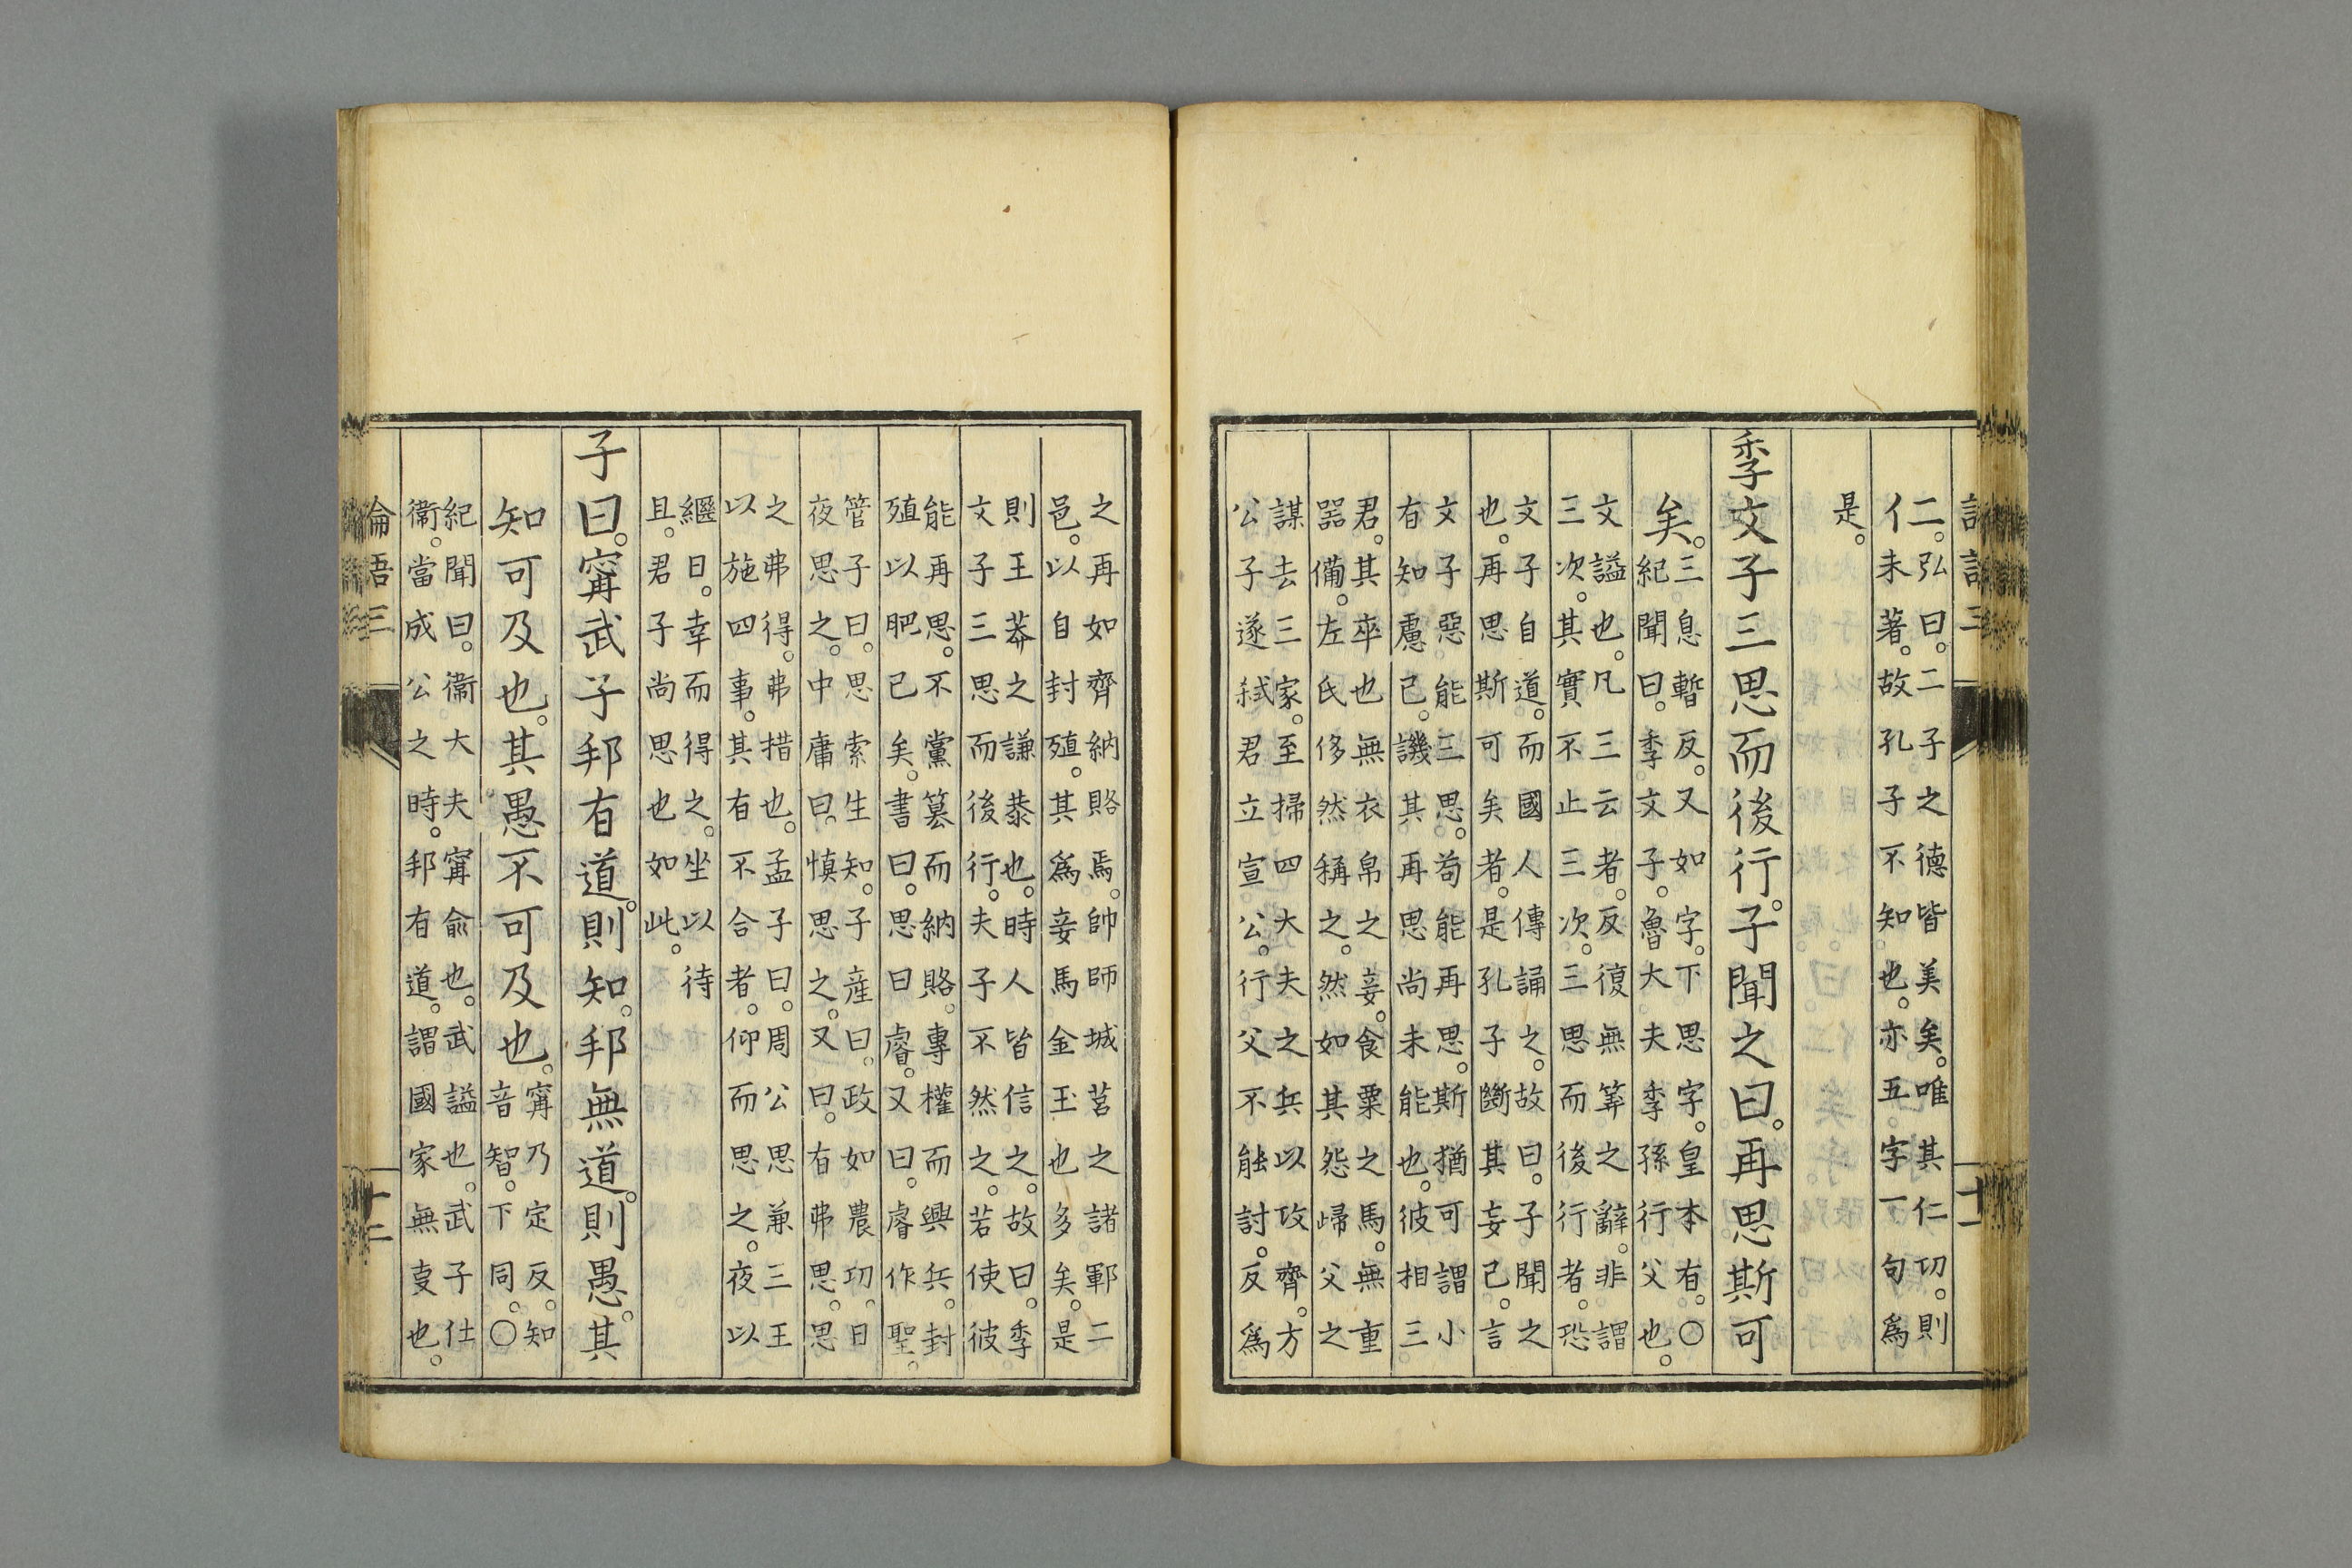 仁。弘曰。二子之德皆美矣。唯其仁切。則
仁未著。故孔子不知也。亦五字一句爲
是。
季文子三思而後行。子聞之曰。再思斯可
矣。
三息暫反。又如字。下思字。皇本有。〇
紀聞曰。季文子。魯大夫季孫行父也。
文謚也。凡三云者。反復無筭之辭。非謂
三次。其實不止三次。三思而後行者。恐
文子自道。而國人傳誦之。故曰。子聞之
也。再思斯可矣者。是孔子斷其妄己。言
文子惡能三思。苟能再思。斯猶可謂小
有知慮己。譏其再思尚未能也。彼相三
君。其卒也無衣帛之妾。食粟之馬。無重
器備。左氏侈然稱之。然如其怨歸父之
謀去三家。至掃四大夫之兵以攻齊。方
公子遂弑君立宣公。行父不能討。反爲
之再如齊納賂焉。帥師城莒之諸鄆二
邑。以自封殖。其爲妾馬金玉也多矣。是
則王莽之謙恭也。時人皆信之。故曰。季
文子三思而後行。夫子不然之。若使彼
能再思。不黨篡而納賂。專權而興兵。封
殖以肥己矣。書曰。思曰睿。又曰。睿作聖。
管子曰。思索生知。子産曰。政如農功。日
夜思之。中庸曰。慎思之。又曰。有弗思。思
之弗得。弗措也。孟子曰。周公思兼三王
以施四事。其有不合者。仰而思之。夜以
繼日。幸而得之。坐以待
旦。君子尚思也如此。
子曰。甯武子邦有道。則知。邦無道。則愚。其
知可及也。其愚不可及也。
甯乃定反。知
音智。下同。〇
紀聞曰。衞大夫甯兪也。武謚也。武子仕
衞。當成公之時。邦有道。謂國家無叓也。
論語三
十二